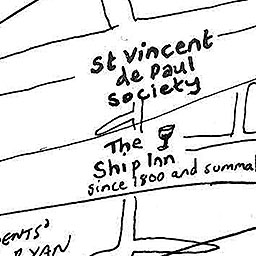 St Vincent
de Paul
Society
The
Ship Inn
since 1800 and summat
ENTS'
RYAN